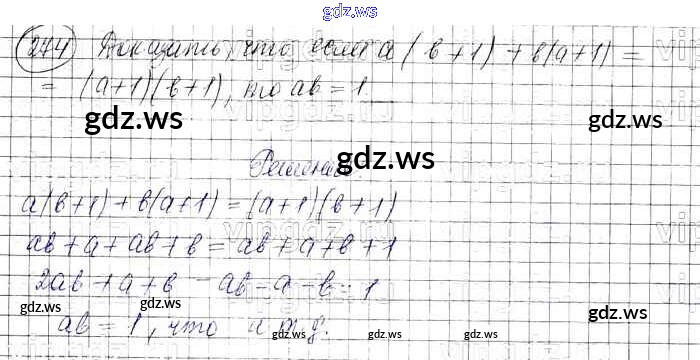 gdz.ws
274 Доказать, что если a(b+1)+b(a+1)=
=(a+1)(b+1), то ab=1
gdz.ws gdz.ws
gdz.ws
Решение
a(b+1)+b(a+1)=(a+1)(b+1)
ab+a+ab+b=ab+a+b+1
2ab+a+b-ab-a-b=1
gdz.ws gdz.ws gdz.ws
ab=1, что и т.д.
gdz.ws gdz.ws gdz.ws